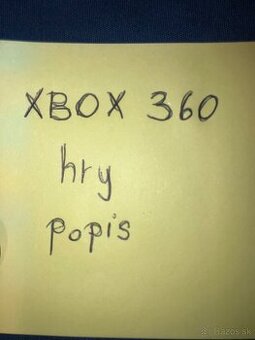 XBOX 360
hry
popis
bazos.sk